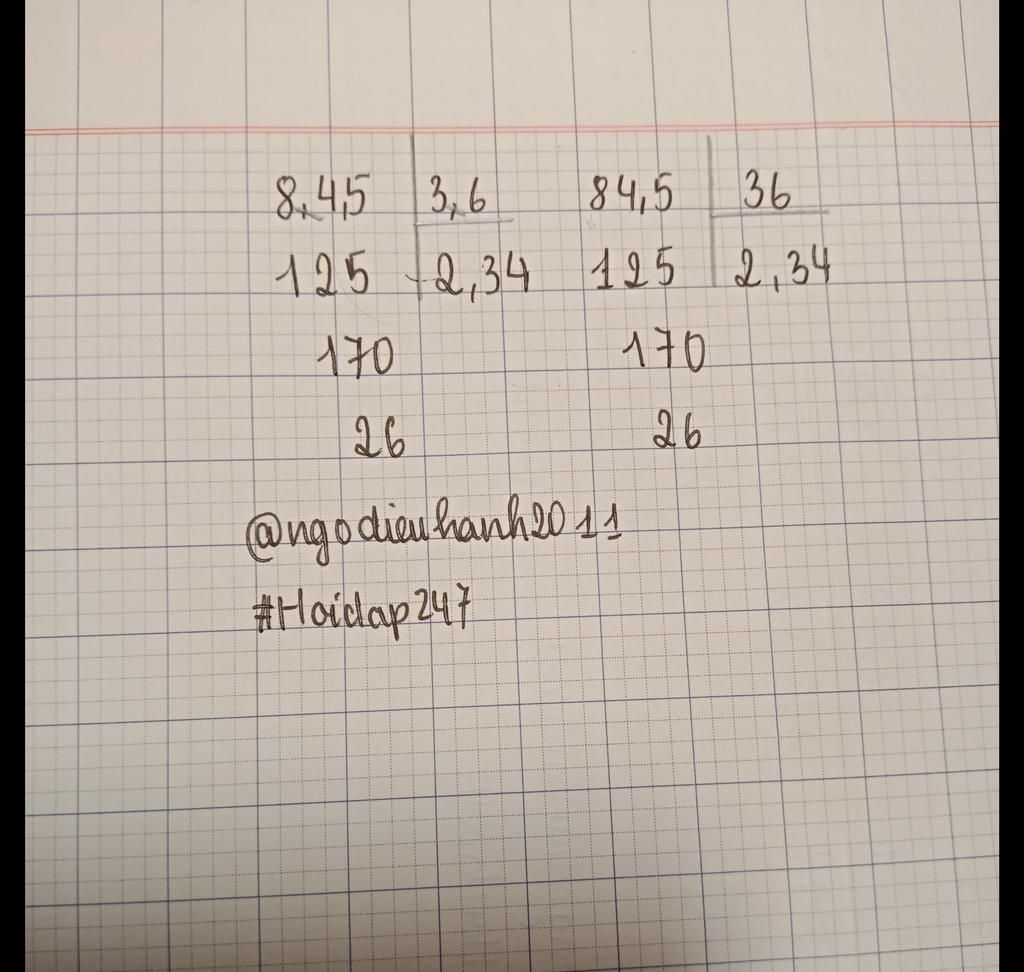 8,4,5 3,6 84,5 36
125 2,34 125 2,34
170 170
26 26
@ngodieuhanh2011
#Hoidap247